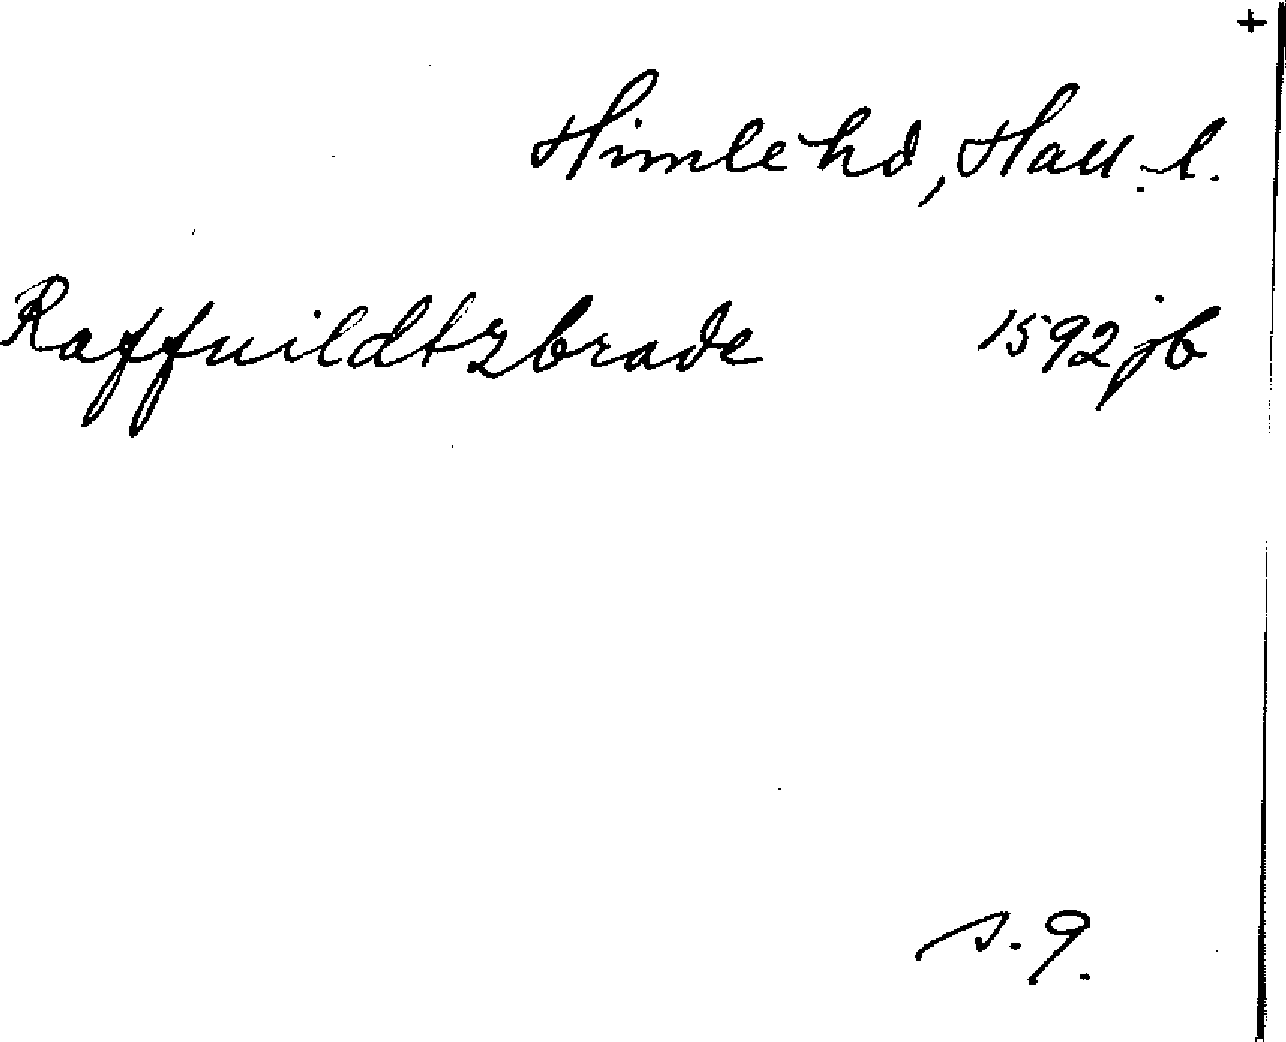 +
Himle hd, Hall. l.
Raffuildtzbrade 1592 jb
s. 9.